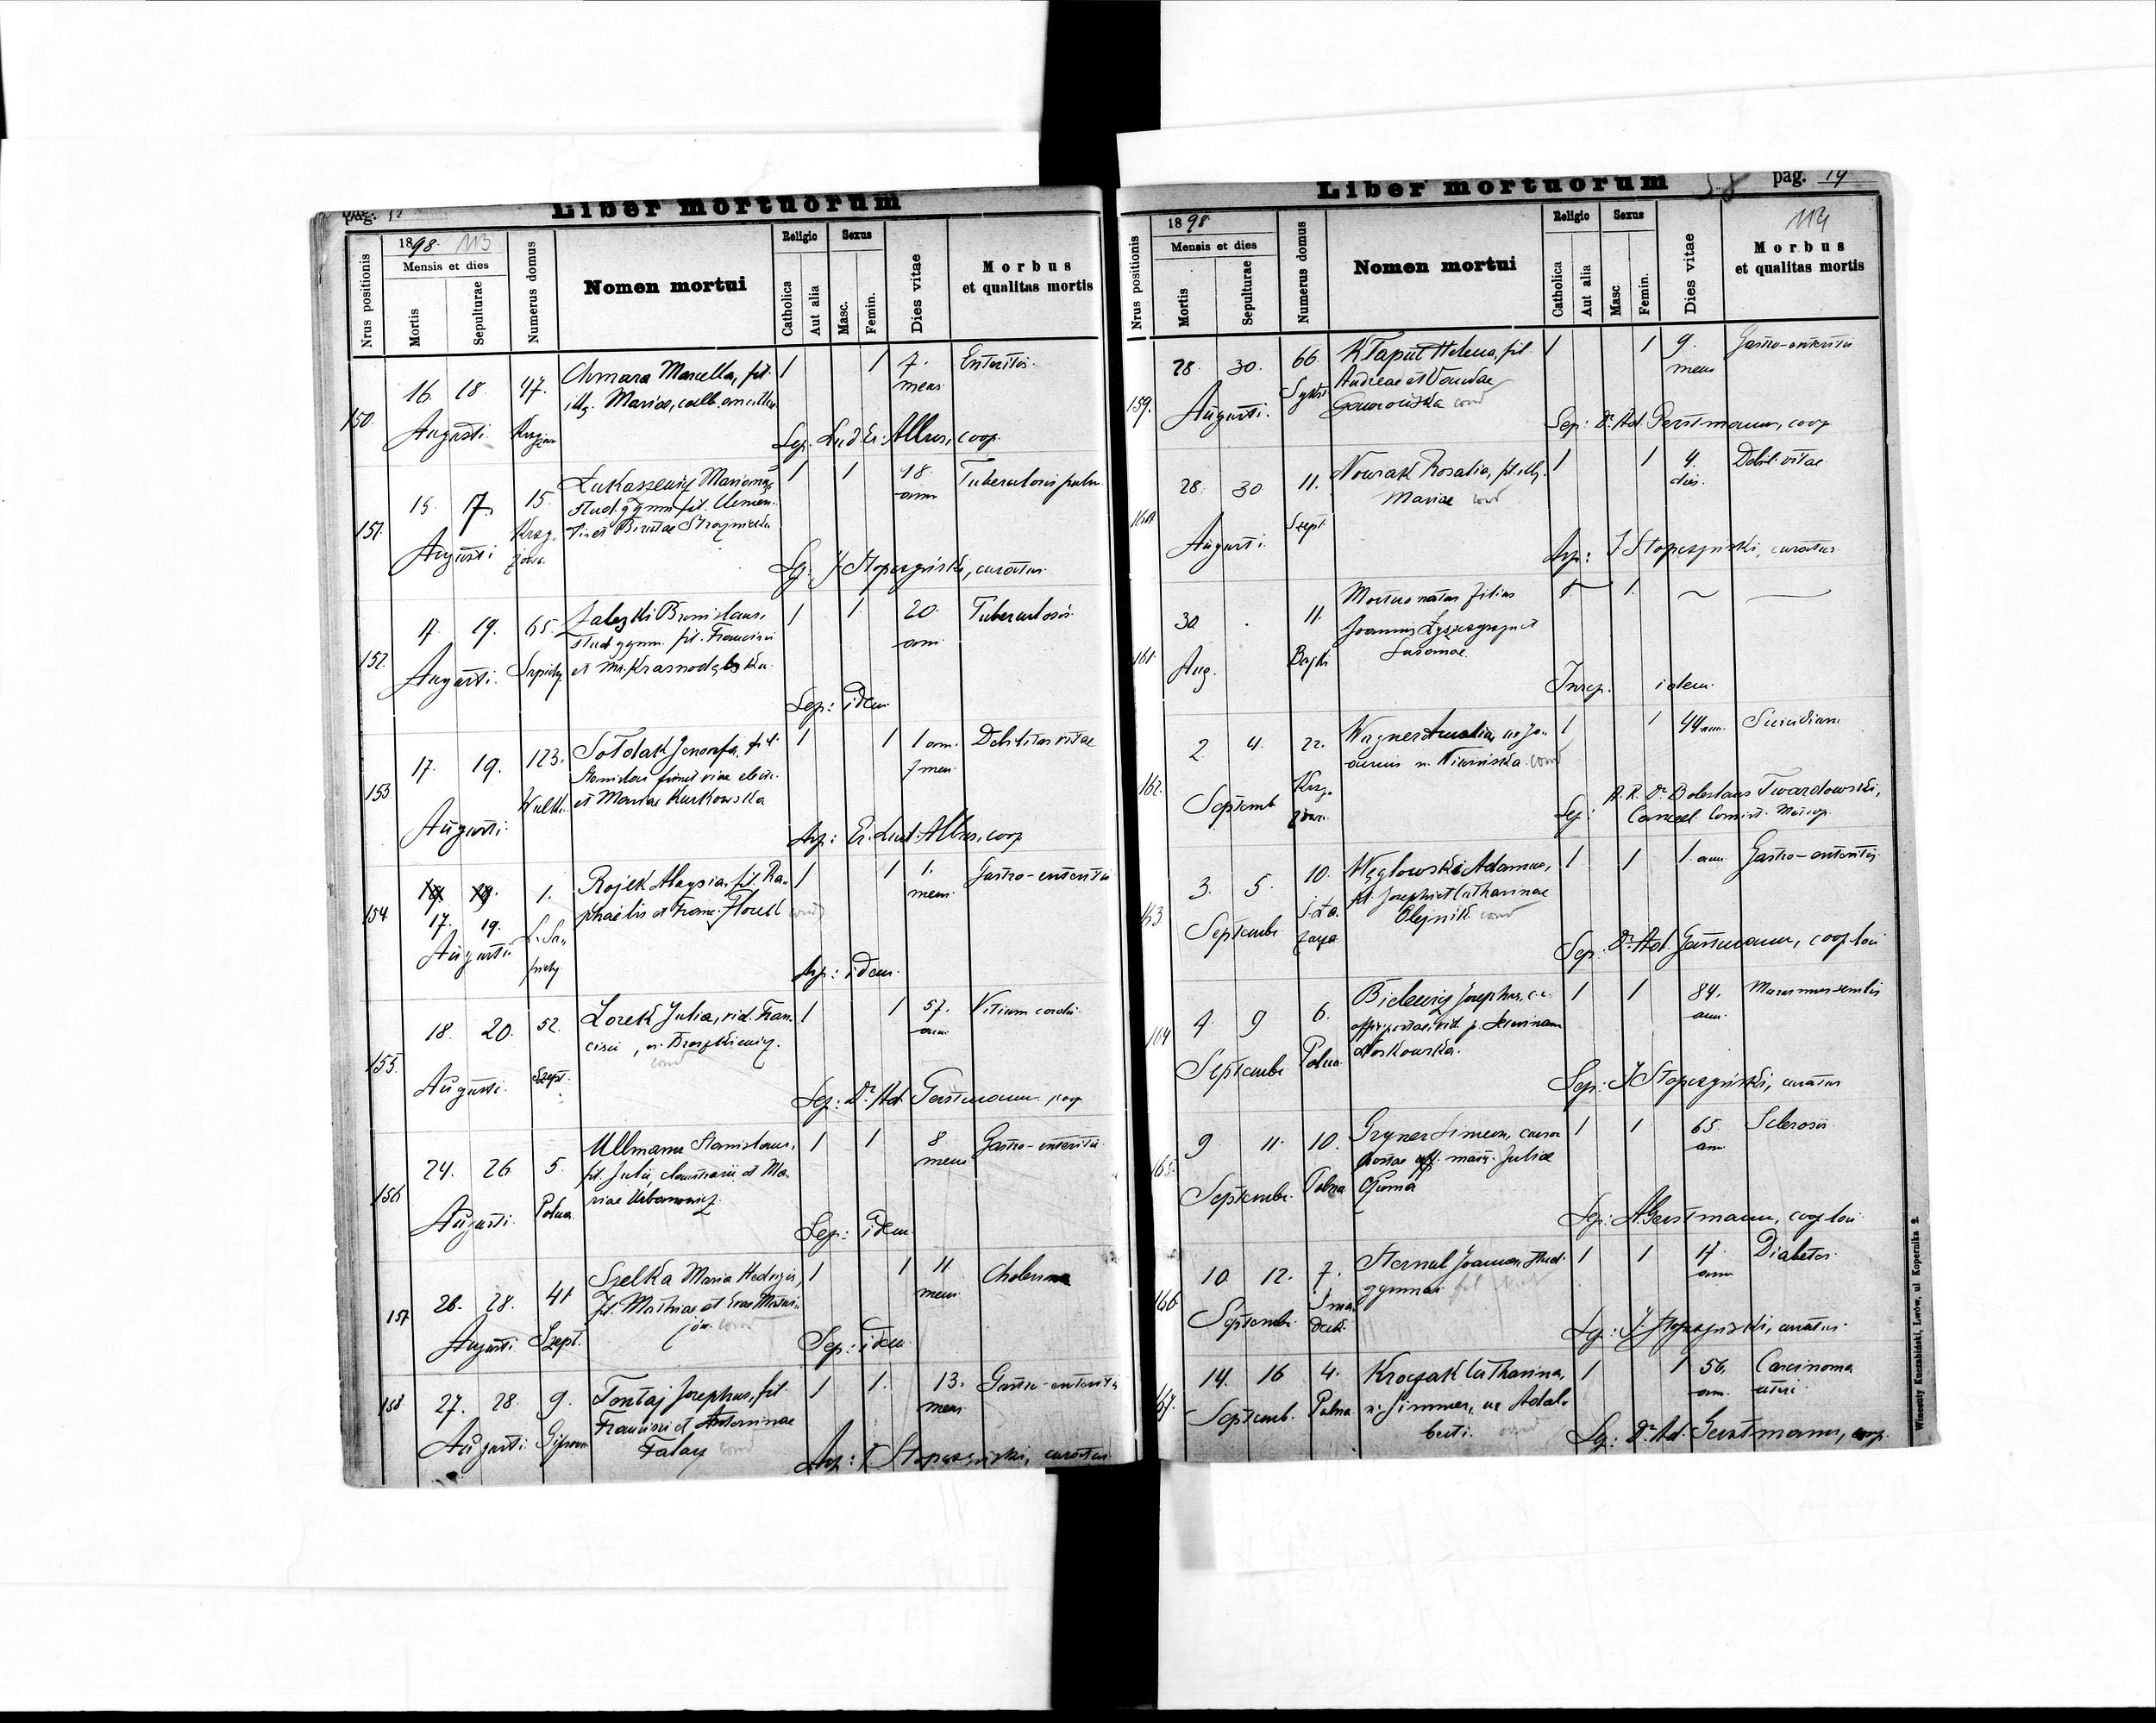 Liber mortuorum
pag.
1898. 113
Mensis et dies
Nrus positionis
Mortis
Sepulturae
Numerus domus
Nomen mortui
Religio
Catholica
Aut alia
Sexus
Masc.
Femin.
Dies vitae
Morbus
et qualitas mortis
150.
16. 18. 47.
Chmara Marcella, fil.
illg. Mariae, caelb. ancillae
1 1 7. Enteritis.
mens
Augusti.
Sep. Lud Er. Allus, coop.
151.
15. 17. 15.
Łukaszewicz Marianus
stud. gymn. fil. Clemen-
1 1 18. Tuberculosis pulm.
ann
Augusti
Sep: J. Stopczyński, curatus.
152.
17. 19. 65.
Zaleski Bronislaus,
stud. gymn. fil. Francisci
et Mr. Krasnodębska.
1 1 20. Tuberculosis.
ann
Augusti. Sapiehy
Sep: idem
153
17. 19. 123.
Sołdak Genovefa, fil.
et Mariae Kurkowska
1 1 1 ann. Debilitas vitae
7 men.
Augusti. Wulk.
Sep: Er. Lud. Allus, coop
154.
18. 19. 1.
17. 19.
Rojek Aloysia, fil. Ra-
phaelis et Franc.
1 1 1. Gastro-enteritis
mens
Augusti. L. Sa-
piehy
Sep: idem.
155.
18. 20. 52.
Lorek Julia, vid. Fran-
cisci, n.
1 1 57. Vitium cordis.
ann
Augusti. Szept.
Sep: Dr. Ad. Gerstmann, coop
156
24. 26 5.
Ullmann Stanislaus,
fil. Julii, et Ma-
riae Urbanowicz.
1 1 8 Gastro-enteritis
mens
Augusti. Polna
Sep: idem
157
26. 28. 41
Szelka Maria Hedvigis,
fil. Mathiae et Evae
1 1 11 Cholerina
mens
Augusti Szept.
Sep: idem
158
27. 28. 9.
Tontaj Josephus, fil.
Francisci et Antoninae
Falacz
1 1. 13. Gastro-enteritis
mens
Augusti
Sep: J Stopczyński, curatus
Liber mortuorum
58 pag. 14
1898 114
Mensis et dies
Nrus positionis
Mortis
Sepulturae
Numerus domus
Nomen mortui
Religio
Catholica
Aut alia
Sexus
Masc
Femin.
Dies vitae
Morbus
et qualitas mortis
159.
28. 30. 66
Kłaput Helena, fil.
Andreae et
1 1 9. Gastro-enteritis
mens
Augusti. Sykst
Sep: Dr. Ad Gerstmann, coop
160
28. 30 11.
Nowak Rosalia, fil. illg.
Mariae
1 1 4. Debil. vitae
dies.
Augusti. Szept
Sep: J Stopczyński, curatus
161.
30 11.
Mortuo natus filius
Joannis
1.
Aug. Bajki
Insep. idem.
162.
2. 4. 22.
Wagner Amalia, ux Jo-
annis n.
1 1 44 ann. Suicidium
Septemb
Sep: A. R. Dr. Boleslaus Twardowski,
Cancel. Consist. Metrop.
163
3. 5. 10.
Węglowski Adamus,
fil. Josephi et Catharinae
Olejnik
1 1 1. ann. Gastro-enteritis
Septembr
Sep. Dr. Ad. Gerstmann, coop loci
164
7 9 6.
Josephus, c. r.
1 1 84. Marasmus senilis
ann.
Septembr Polna
Sep: J Stopczyński, curatus
165.
9 11. 10.
Gryner Simeon,
Julia
1 1 65. Sclerosis.
ann
Septembr. Polna
Sep: A Gerstmann, coop loci
166
10. 12. 7.
Sternal Joannes, stud.
gymnas.
1 1 17. Diabetes.
ann
Septembr.
Sep: J. Stopczyński, curatus.
167.
14. 16 4.
Kroczak Catharina,
n. Simmer, ux Adal-
berti.
1 1 56. Carcinoma
ann. uteri
Septemb. Polna
Sep: Dr. Ad. Gerstmann, coop.
Wincenty Kuczabiński, Lwów, ul Kopernika 2